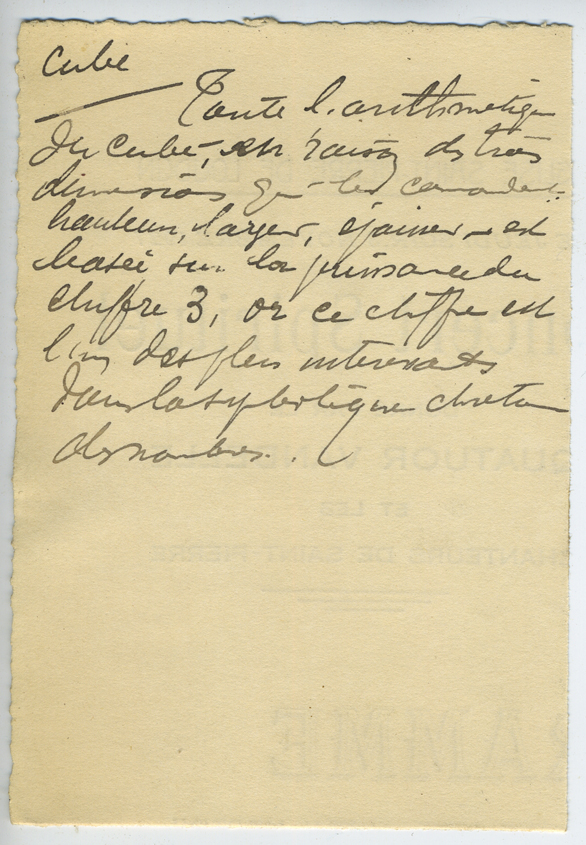 Cube
Toute l'arithmétique
du cube, en raison des trois
dimensions qui le commandent:
hauteur, largeur, épaisseur, est
basée sur la puissance du
chiffre 3, or ce chiffre est
l'un des plus intéressants
dans la symbolique
des nombres.
QUATUOR
ET LES
CHANTEURS DE SAINT-PIERRE
RAMME